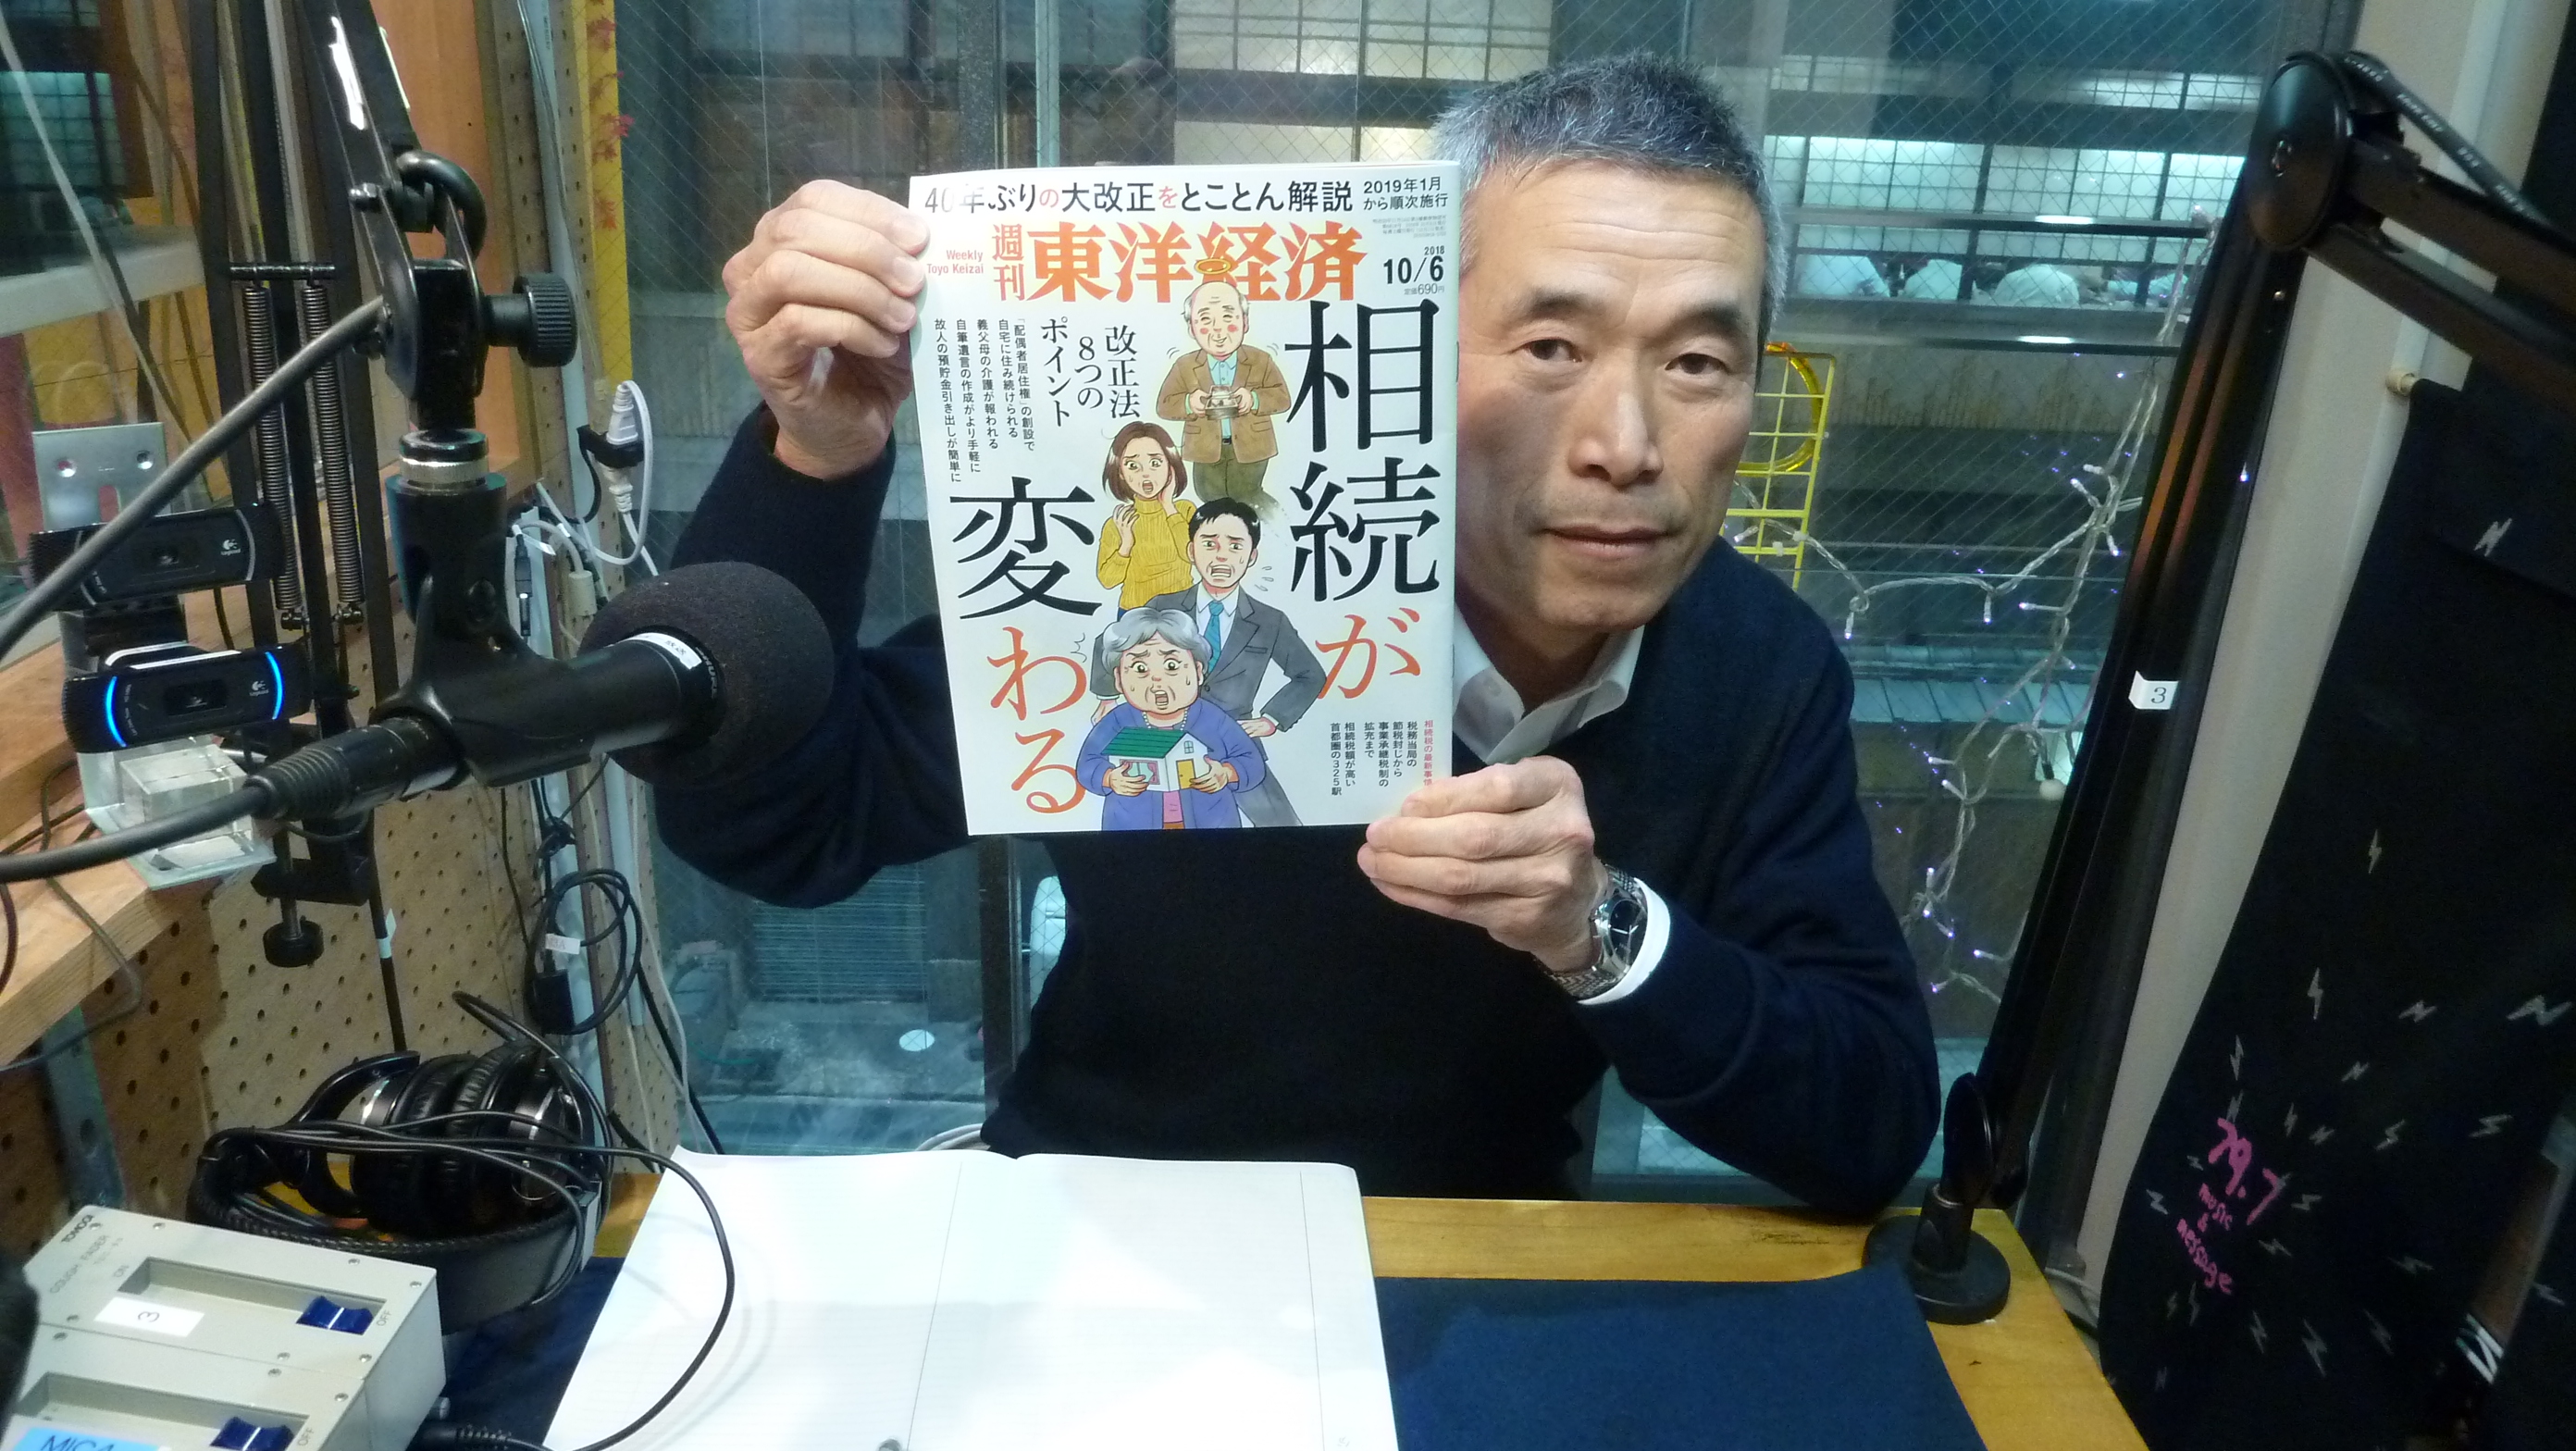 40年ぶりの大改正をとことん解説
2019年1月
から順次施行
Weekly
Toyo Keizai
週刊
東洋経済
2018
10/6
定価690円
相続が
変わる
改正法
8つの
ポイント
「配偶者居住権」の創設で
自宅に住み続けられる
義父母の介護が報われる
自筆遺言の作成がより手軽に
故人の預貯金引き出しが簡単に
相続税の最新事情
税務当局の
節税封じから
事業承継税制の
拡充まで
相続税額が高い
首都圏の325駅
Logicool
Logicool
3
79.7
music
&
message
TOMOCA
COUGH FADER
ON
3
OFF
OFF
MIC4